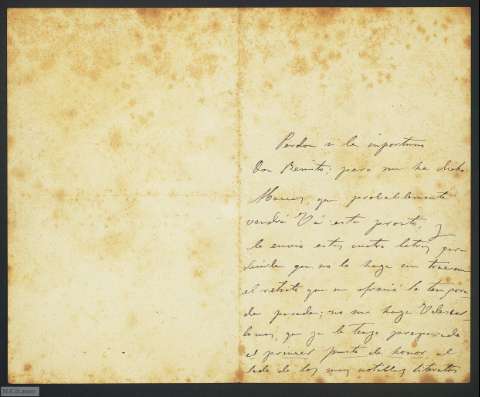 Perdon si le importuno
Don Benito; pero me ha dicho
que probablemente
vendrá Vd este pronto, y
le envio estas cuatro letras para
decirle que no lo haga sin traerme
el retrato que me ofreció la tempora-
da pasada; no me haga
que ya le tengo preparado
el primer puesto de honor al
lado de los mas notables literatos